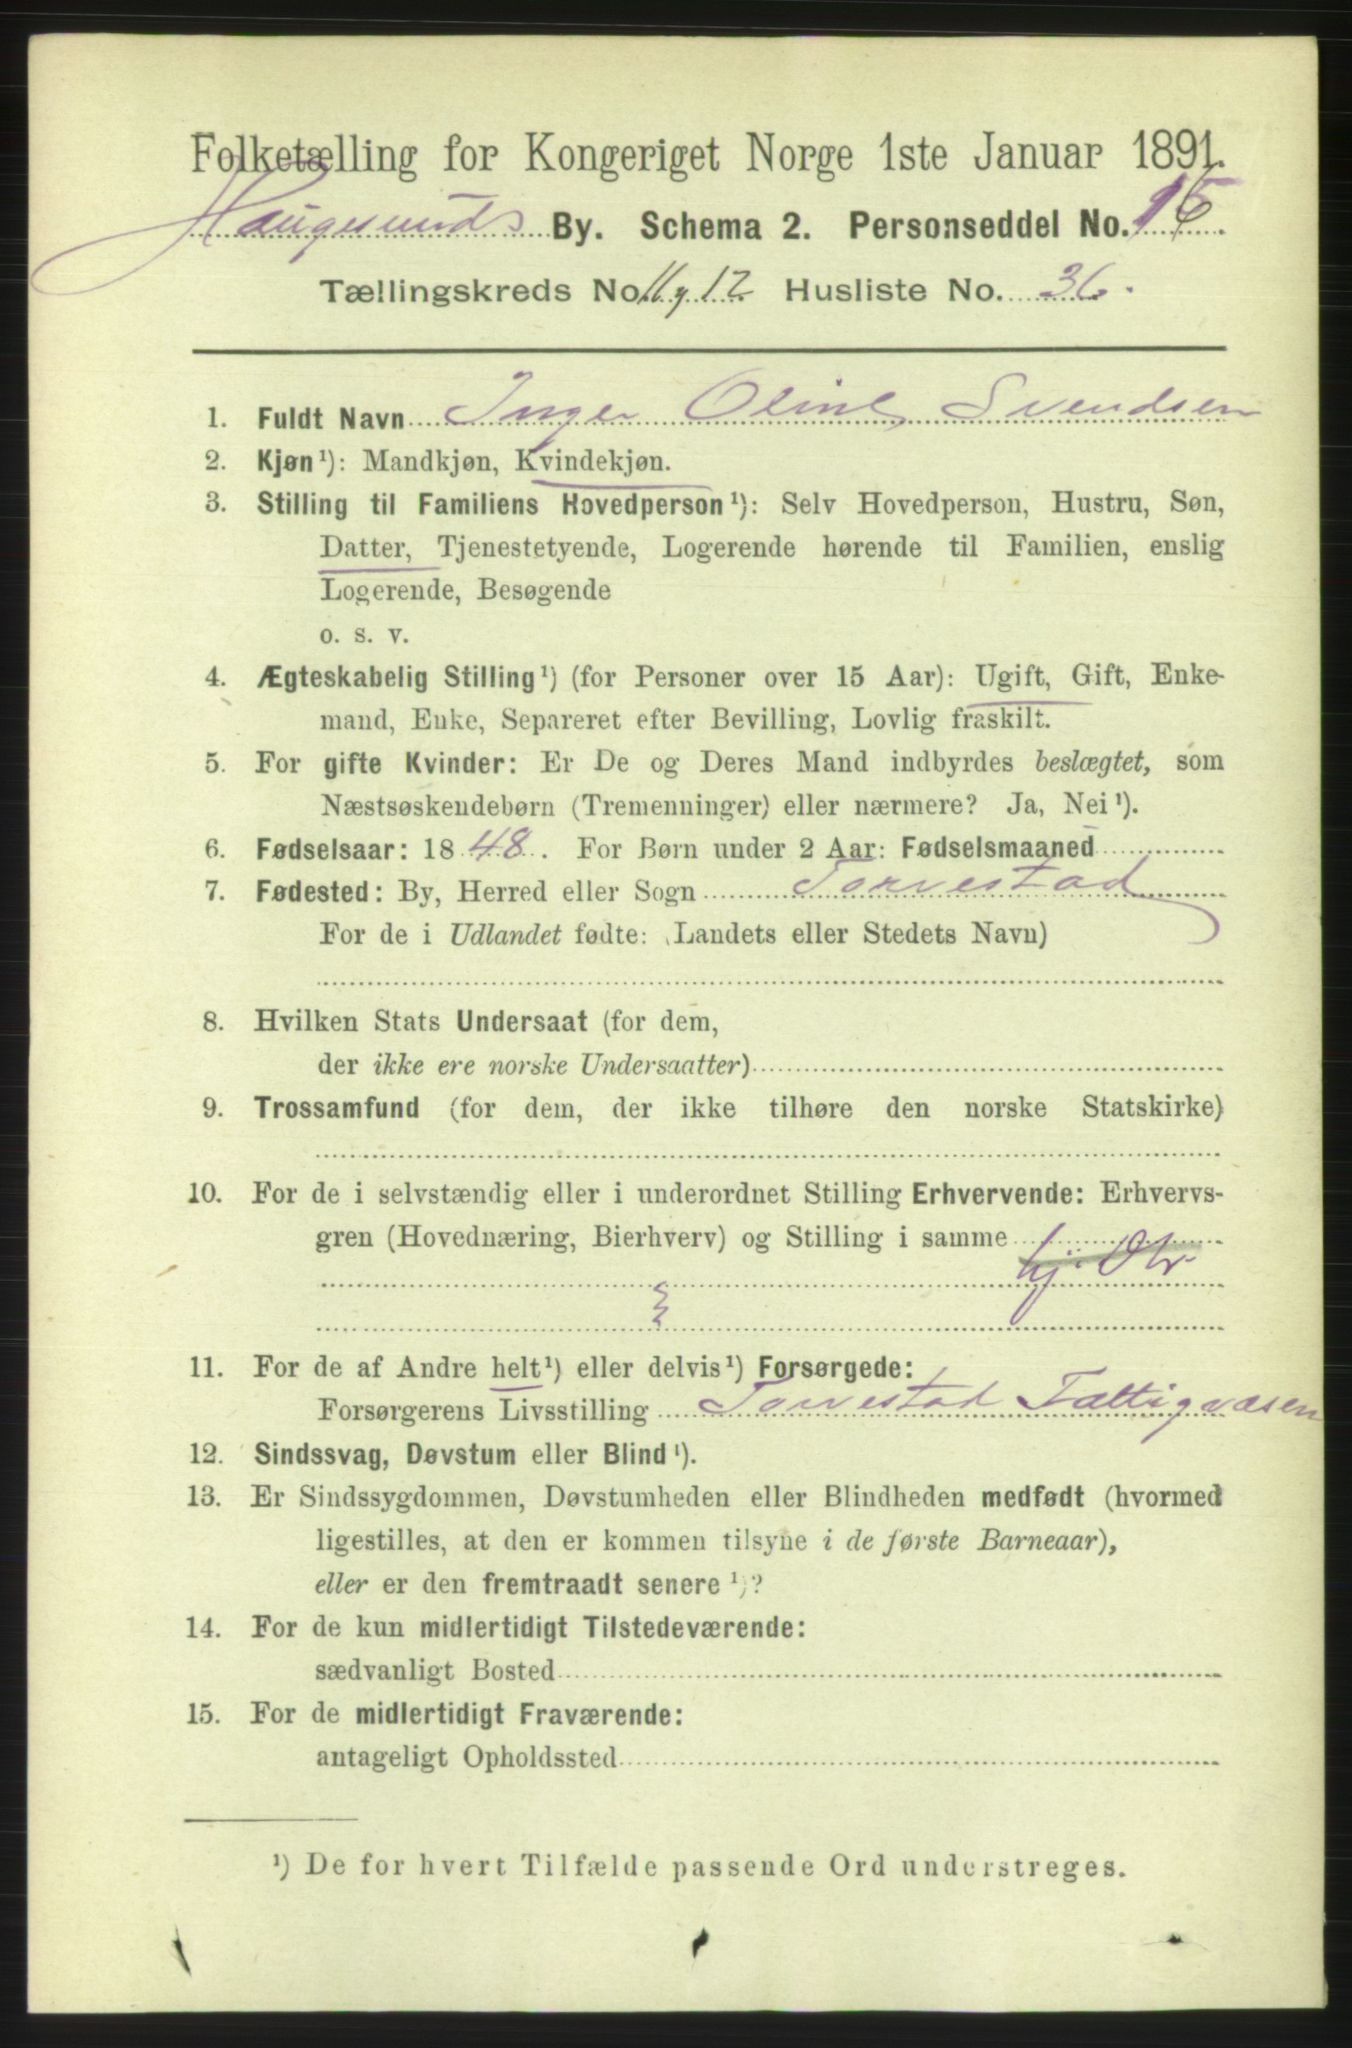 Folketælling for Kongeriget Norge 1ste Januar 1891.
Haugesunds By. Schema 2. Personseddel No.
Tællingskreds No. 11 og 12 Husliste No. 36.
1. Fuldt Navn Inger Oline Svendsen
2. Kjøn¹): Mandkjøn, Kvindekjøn.
3. Stilling til Familiens Hovedperson¹): Selv Hovedperson, Hustru, Søn,
Datter, Tjenestetyende, Logerende hørende til Familien, enslig
Logerende, Besøgende
o. s. v.
4. Ægteskabelig Stilling¹) (for Personer over 15 Aar): Ugift, Gift, Enke-
mand, Enke, Separeret efter Bevilling, Lovlig fraskilt.
5. For gifte Kvinder: Er De og Deres Mand indbyrdes beslægtet, som
Næstsøskendebørn (Tremenninger) eller nærmere? Ja, Nei¹).
6. Fødselsaar: 1848. For Børn under 2 Aar: Fødselsmaaned
7. Fødested: By, Herred eller Sogn Torvestad
For de i Udlandet fødte: (Landets eller Stedets Navn)
8. Hvilken Stats Undersaat (for dem,
der ikke ere norske Undersaatter)
9. Trossamfund (for dem, der ikke tilhøre den norske Statskirke)
10. For de i selvstændig eller i underordnet Stilling Erhvervende: Erhvervs-
gren (Hovednæring, Bierhverv) og Stilling i samme
11. For de af Andre helt¹) eller delvis¹) Forsørgede:
Forsørgerens Livsstilling Torvestad Fattigvæsen
12. Sindssvag, Døvstum eller Blind¹).
13. Er Sindssygdommen, Døvstumheden eller Blindheden medfødt (hvormed
ligestilles, at den er kommen tilsyne i de første Barneaar),
eller er den fremtraadt senere¹)?
14. For de kun midlertidigt Tilstedeværende:
sædvanligt Bosted
15. For de midlertidigt Fraværende:
antageligt Opholdssted
¹) De for hvert Tilfælde passende Ord understreges.